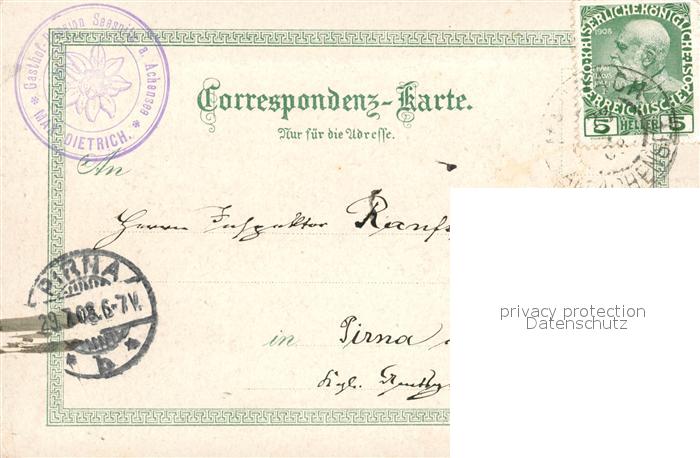 Gasthof Pension Seespitz a. Achensee
* MAX DIETRICH. *
KAISERLICHE KÖNIGLICHE
1908
ÖSTERREICHISCHE
5 HELLER 5
Correspondenz-Karte.
Nur für die Adresse.
An
Herrn Inspektor
PIRNA
29.7.08.6-7V.
* b *
in Pirna
Kgl.
privacy protection
Datenschutz